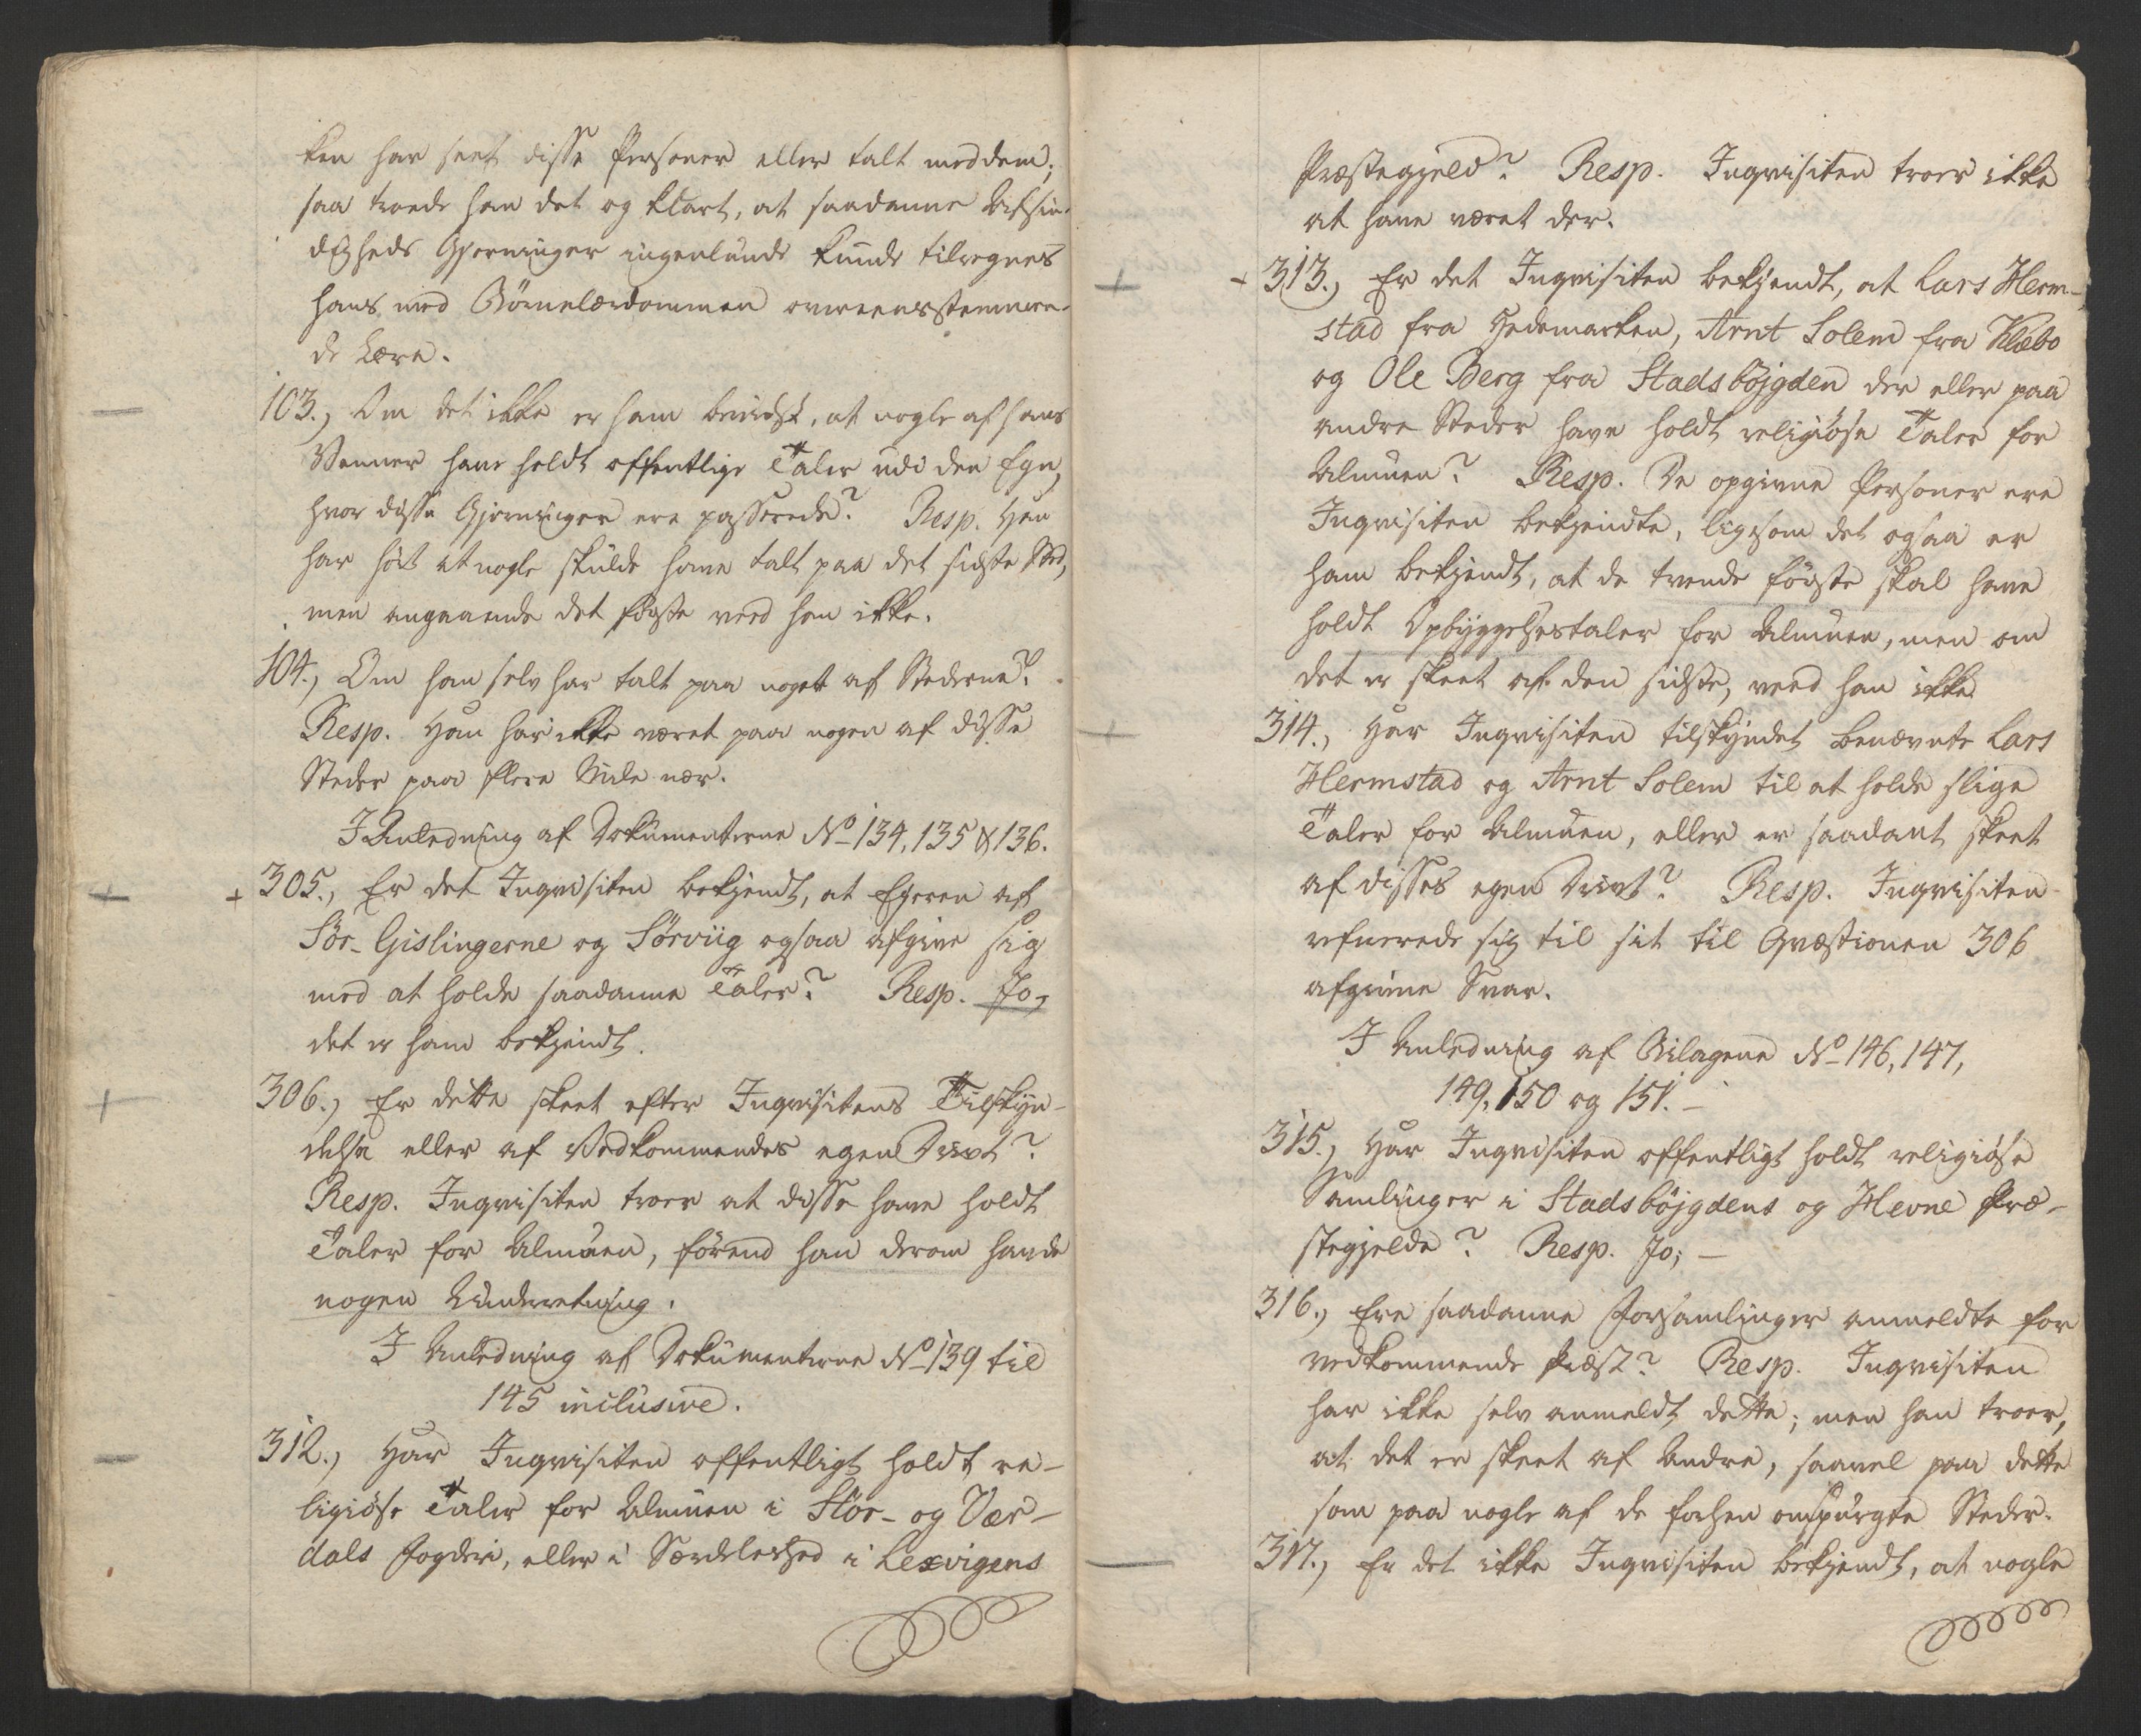 ken har seet disse Personer eller talt med dem;
saa troede han det og klart, at saadanne Afsin-
digheds Gjerninger ingenlunde kunde tilregnes
hans med Börnelærdommen overeensstemmen-
de Lære.
103.) Om det ikke er ham bevidst, at nogle af hans
Venner have holdt offentlige Taler udi den Egn,
hvor disse Gjerninger ere passerede? Resp. Han
har hört at nogle skulde have talt paa det sidste Sted,
men angaaende det förste veed han ikke.
104.) Om han selv har talt paa noget af Stederne?
Resp. Han har ikke været paa nogen af disse
Steder paa flere Mile nær.
I Anledning af Dokumenterne No 134, 135 & 136.
305.) Er det Inqvisiten bekjendt, at Eieren af
Sör-Gislingerne og Sörviig ogsaa afgive sig
med at holde saadanne Taler? Resp. Jo,
det er ham bekjendt.
306.) Er dette skeet efter Inqvisitens Tilskyn-
delse eller af Vedkommendes egen Drivt?
Resp. Inqvisiten troer at disse have holdt
Taler for Almuen, förend han derom havde
nogen Underretning.
I Anledning af Dokumenterne No 139 til
145 inclusive.
312.) Har Inqvisiten offentligt holdt re-
ligiöse Taler for Almuen i Stör- og Vær-
dals Fogderi, eller i Særdeleshed i Lexvigens
Præstegjeld? Resp. Inqvisiten troer ikke
at have været der.
313.) Er det Inqvisiten bekjendt, at Lars Herm-
stad fra Hedemarken, Arnt Solem fra Klæbo
og Ole Berg fra Stadsböjgden der eller paa
andre Steder have holdt religiöse Taler for
Almuen? Resp. De opgivne Personer ere
Inqvisiten bekjendte, ligesom det ogsaa er
ham bekjendt, at de tvende förste skal have
holdt Opbyggelsestaler for Almuen, men om
det er skeet af den sidste, veed han ikke.
314.) Har Inqvisiten tilskyndet benævnte Lars
Hermstad og Arnt Solem til at holde slige
Taler for Almuen, eller er saadant skeet
af disses egen Drivt? Resp. Inqvisiten
refererede sig til sit til Qvæstionen 306
afgivne Svar.
I Anledning af Bilagene No 146, 147,
149, 150 og 151. –
315.) Har Inqvisiten offentligt holdt religiöse
Samlinger i Stadsböjgdens og Hevne Præ-
stegjelde? Resp. Jo; –
316.) Ere saadanne Forsamlinger anmeldte for
vedkommende Præst? Resp. Inqvisiten
har ikke selv anmeldt dette; men han troer,
at det er skeet af Andre, saavel paa dette
som paa nogle af de forhen omspurgte Steder.
317.) Er det ikke Inqvisiten bekjendt, at nogle